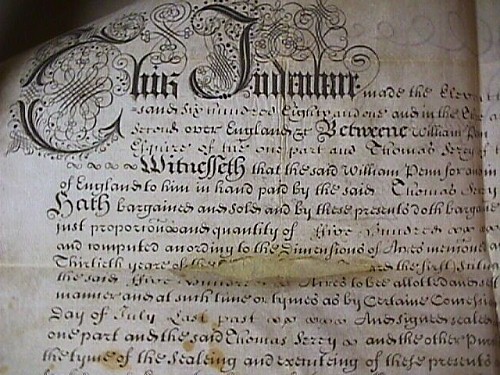 This Indenture made the
sand six hundred Eighty and one and in the
Second over England &c Betweene William Pen
Esquire of the one part and Thomas
Witnesseth that the said William Penn for a
of England to him in hand paid by the said Thomas
Hath bargained and sold and by these presents doth bargaine
just proportion and quantity of Five Hundred
and computed according to the Dimensions of Acres mentioned
Thirtieth yeare of the the first
the said Five Hundred Acres to bee allotted and set
manner and at such time or tymes as by Certaine
Day of July Last past And signed sealed
one part and the said Thomas and the other Pur
the tyme of the Sealeing and executeing of these presents